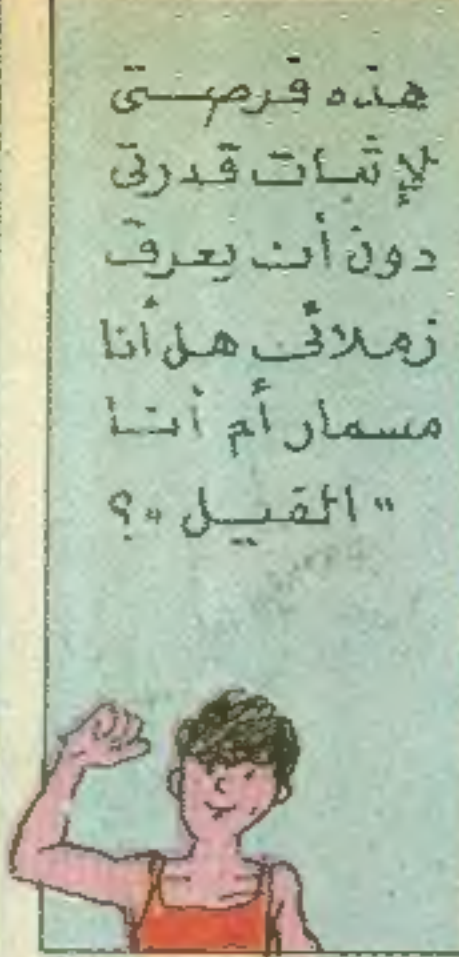 هذه فرصتى
لإثبات قدرتى
دون أن يعرف
زملائى هل أنا
مسمار أم أنا
"الفيل"؟